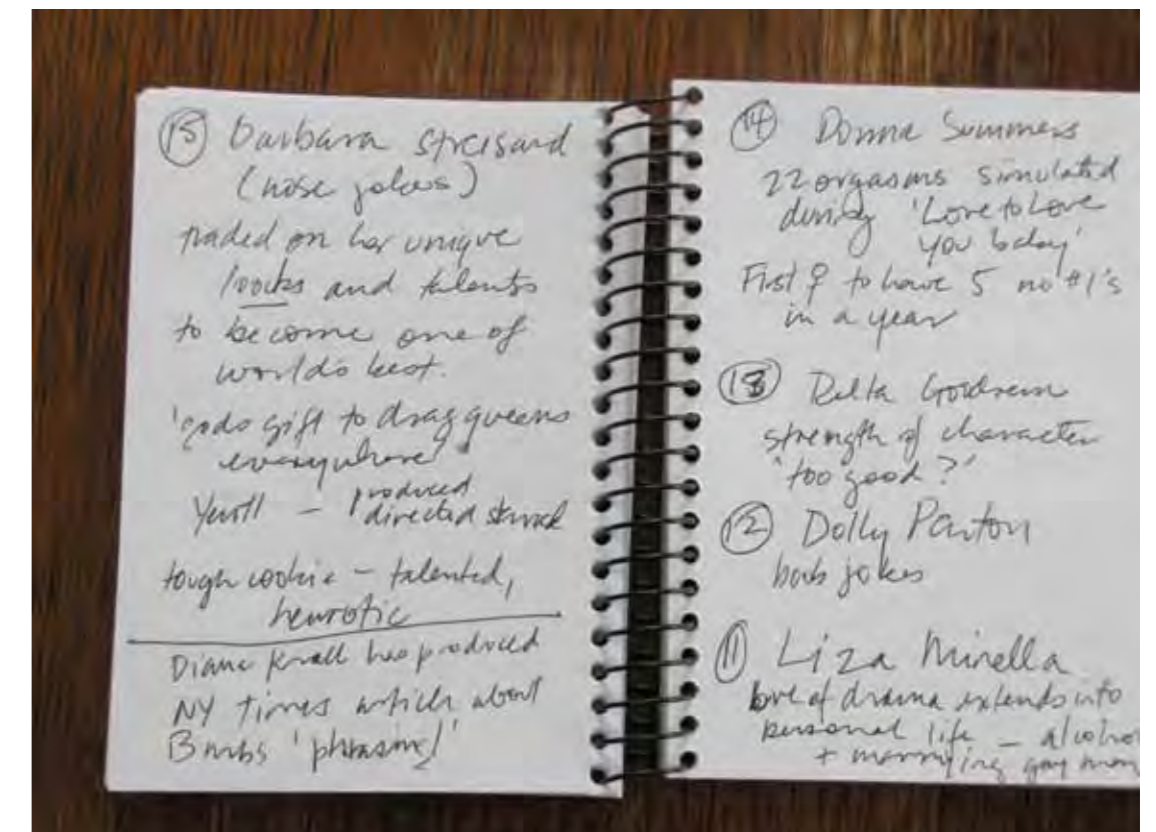 15 Barbara Streisand
(nose jokes)
traded on her unique
looks and talents
to become one of
world's best.
'gods gift to drag queens
everywhere'
Yentl - produced
directed starred
tough cookie - talented,
neurotic
Diana Krall has produced
NY Times article about
Barbs 'phrasing'
14 Donna Summers
22 orgasms simulated
during 'Love to Love
you baby'
First ♀ to have 5 no #1's
in a year
13 Delta Goodrem
strength of character
'too good?'
12 Dolly Parton
boob jokes
11 Liza Minella
love of drama extends into
personal life - alcohol
+ marrying gay men